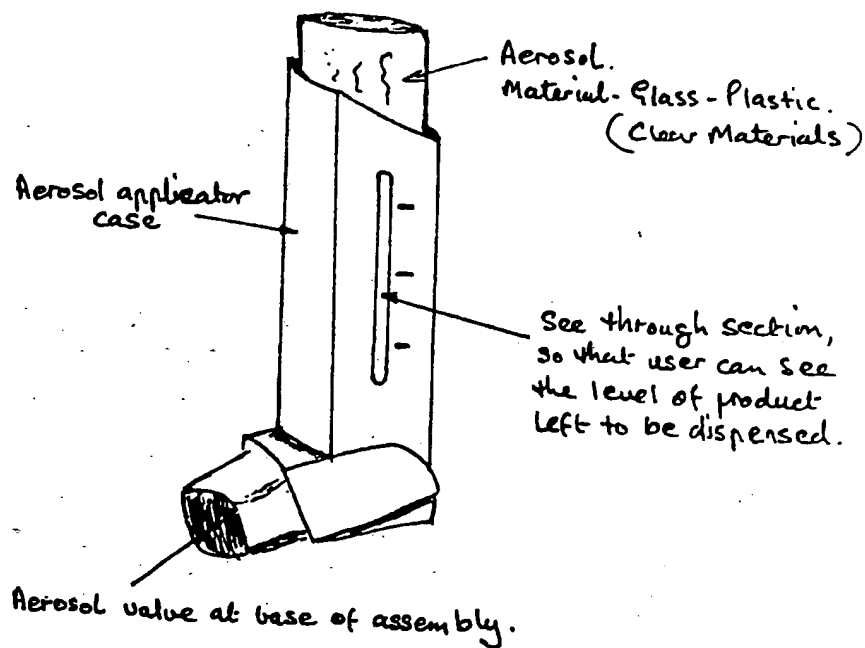 Aerosol.
Material-Glass-Plastic.
(Clear Materials)
Aerosol applicator
case
See through section,
so that user can see
the level of product
left to be dispensed.
Aerosol value at base of assembly.